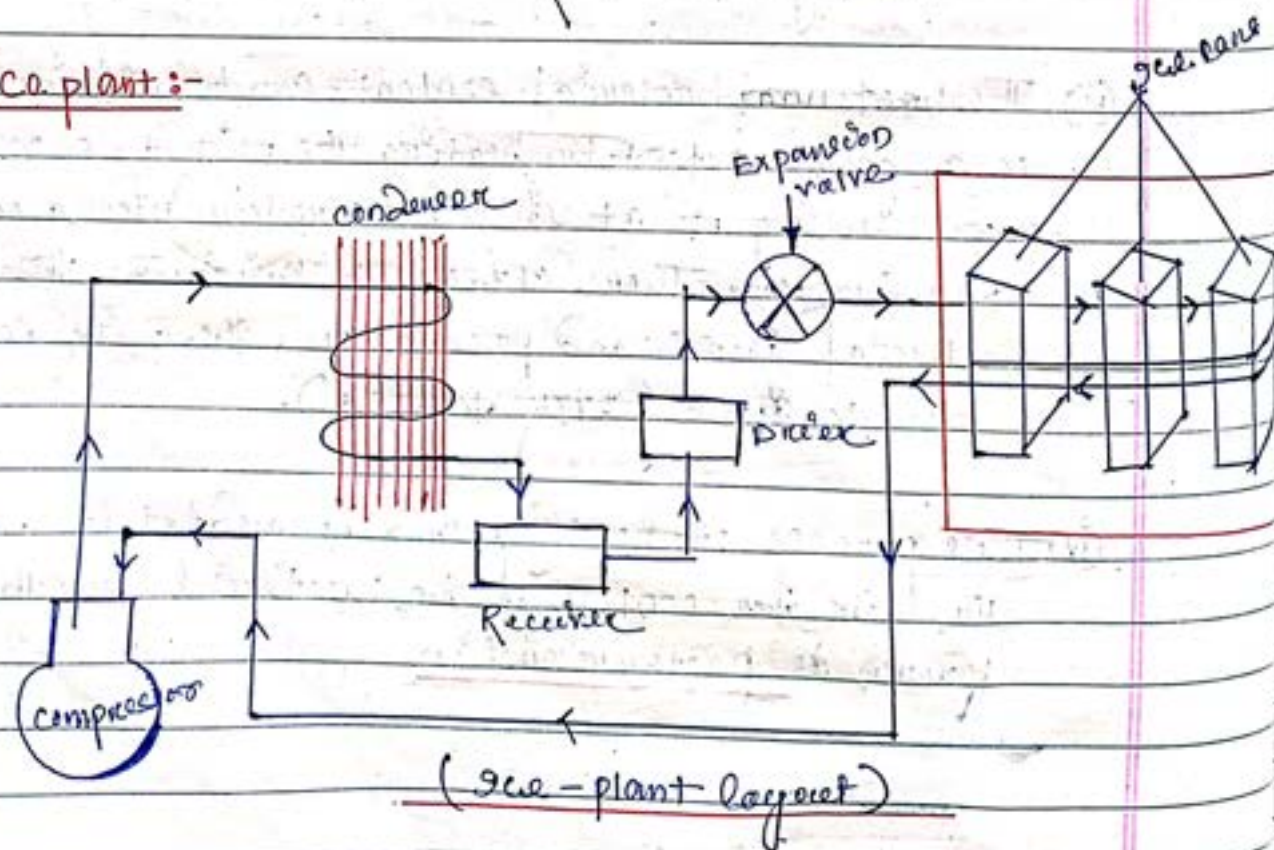 plant :-
Ice cans
Expansion
valve
condenser
Drier
Receiver
compressor
(Ice - plant layout)